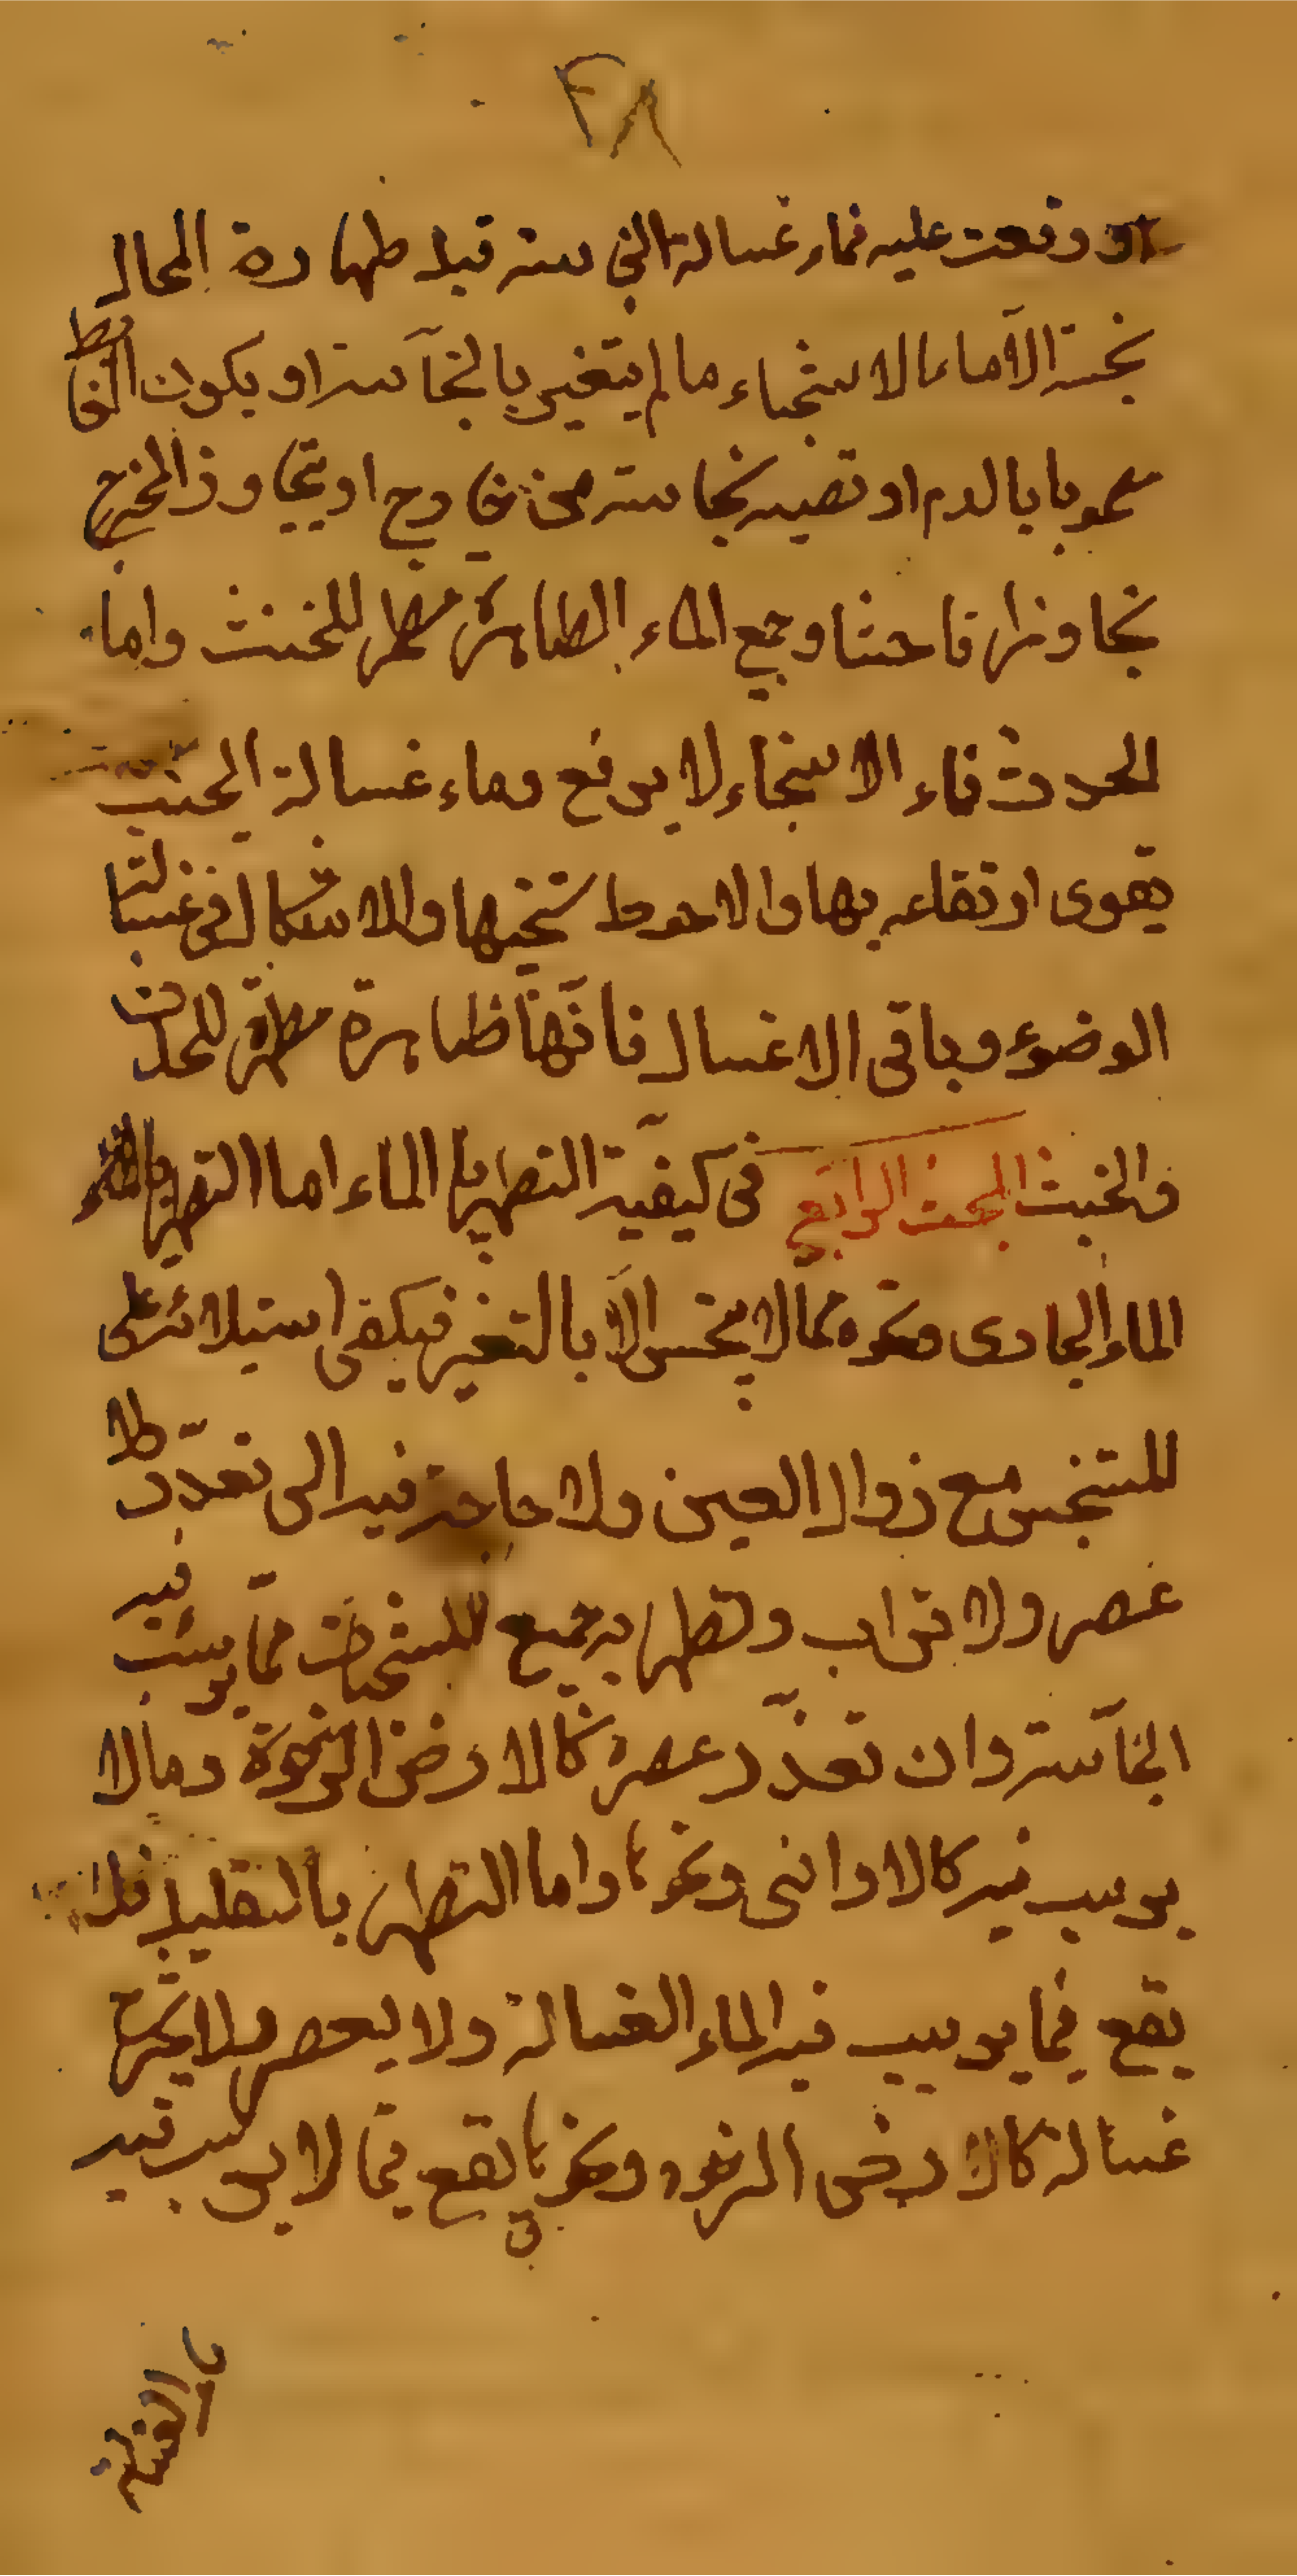 ٢٨
او وقعت عليه فماء غسالة التي سته قبل طهارة المحال
نجسة الا ماء الاستنجاء ما لم يتغير بالنجاسة او يكون الغائط
مصحوبا بالدم او تصيبه نجاسة من خارج او يتجاوز المخرج
تجاوزا فاحشا وجميع الماء الطاهرة مطهر للخبث واما
الحدث فماء الاستنجاء لا يرفع وماء غسالة الجنب
يقوى ارتفاعه بها والاحوط تجنبها والاشكال في غسالة
الوضوء وباقي الاغسال فانها طاهرة مطهرة للحدث
والخبث المبحث الرابع في كيفية التطهير بالماء اما التطهير
الماء الجاري ونحوه مما لا ينجس الا بالتغير فيكفي استيلائه على
المتنجس مع زوال العين ولا حاجة فيه الى تعدد ولا
عصر ولا تراب وتطهر به جميع المتنجسات مما يرسب فيه
النجاسة وان تعذر عصره كالارض الرخوة وما لا
يرسب فيه كالاواني ونحوها واما التطهير بالقليل فلا
يقع فيما يرسب فيه الماء الغسالة ولا يعصر ولا يخرج
غسالة كالارض الرخوه ونحوها يقع فيما لا يرسب فيه
الغسالة